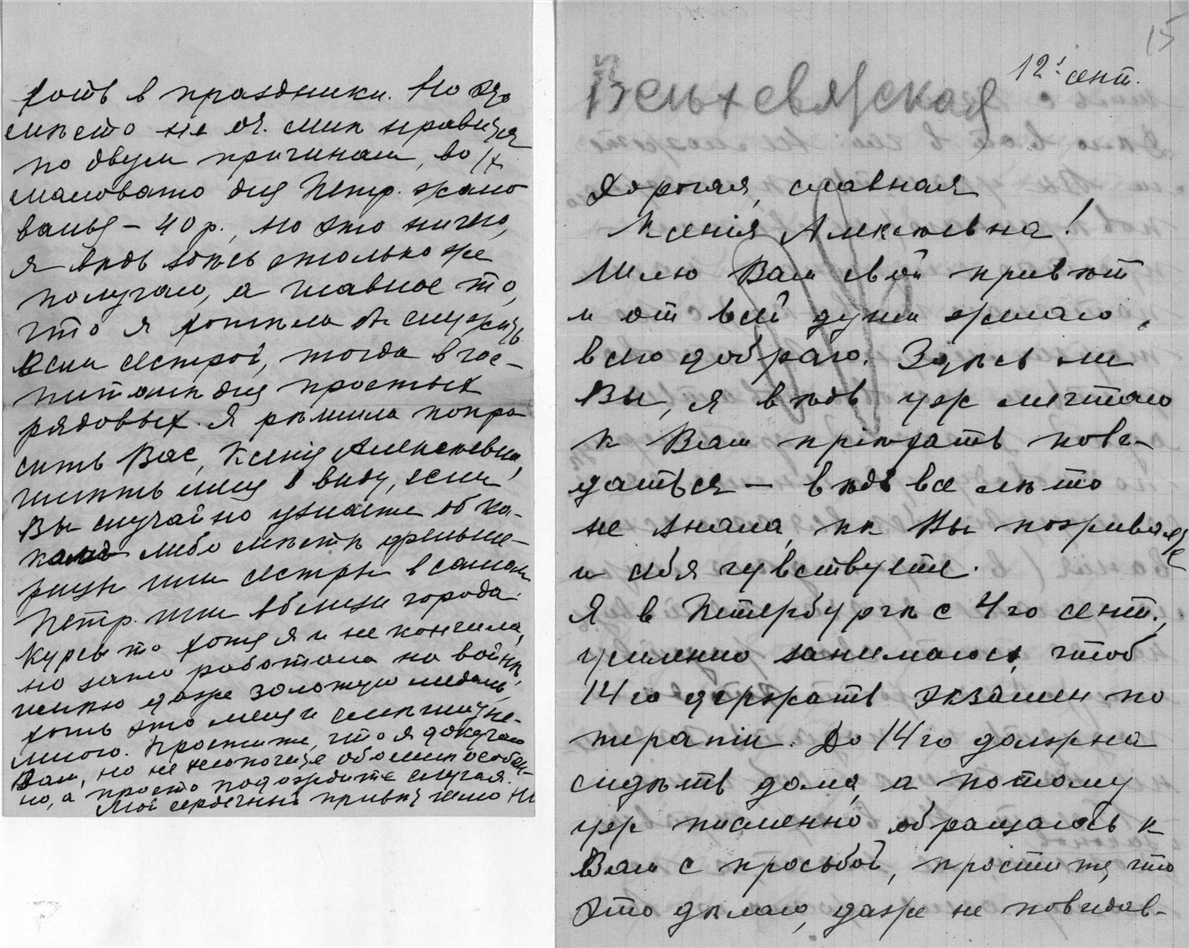 хоть в праздники. Но это
мѣсто не оч. мнѣ нравится
по двум причинам, во 1х
маловато для Петр. жало
ванья – 40 р., но это ничего,
я вѣдь здѣсь столько же
получаю, а главное то,
что я хотѣла бы служить
всем сестрой, тогда в гос-
питалѣ для простых
рядовых. Я рѣшила попро
сить Вас, Ксенія Алексѣевна,
имѣть меня в виду, если
Вы случайно узнаете об ка-
ком либо мѣстѣ фельдше-
рицы или сестры в самом
Петр. или вблизи города.
Курсы то хотя я и не кончила,
но зато работала на войнѣ,
имѣю даже золотую медаль,
хоть это меня и смѣшит не-
много. Простите, что я докучаю
Вам, но не хлопочите обо мнѣ особен-
но, а просто подождите случая.
Мой сердечный привѣт
15
12го сент.
Дорогая, славная
Ксенія Алексѣевна!
Шлю Вам свой привѣт
и от всей души желаю
всего добраго. Здѣсь ли
Вы, я вѣдь уж мечтаю
к Вам пріѣхать пови-
даться – вѣдь все лѣто
не знала, как Вы поживаете
и себя чувствуете.
Я в Петербургѣ с 4го сент.,
усиленно занимаюсь, чтоб
14го держать экзамен по
терапіи. До 14го должна
сидѣть дома, а потому
уж письменно обращаюсь к
Вам с просьбой, простите, что
это дѣлаю, даже не повидав-